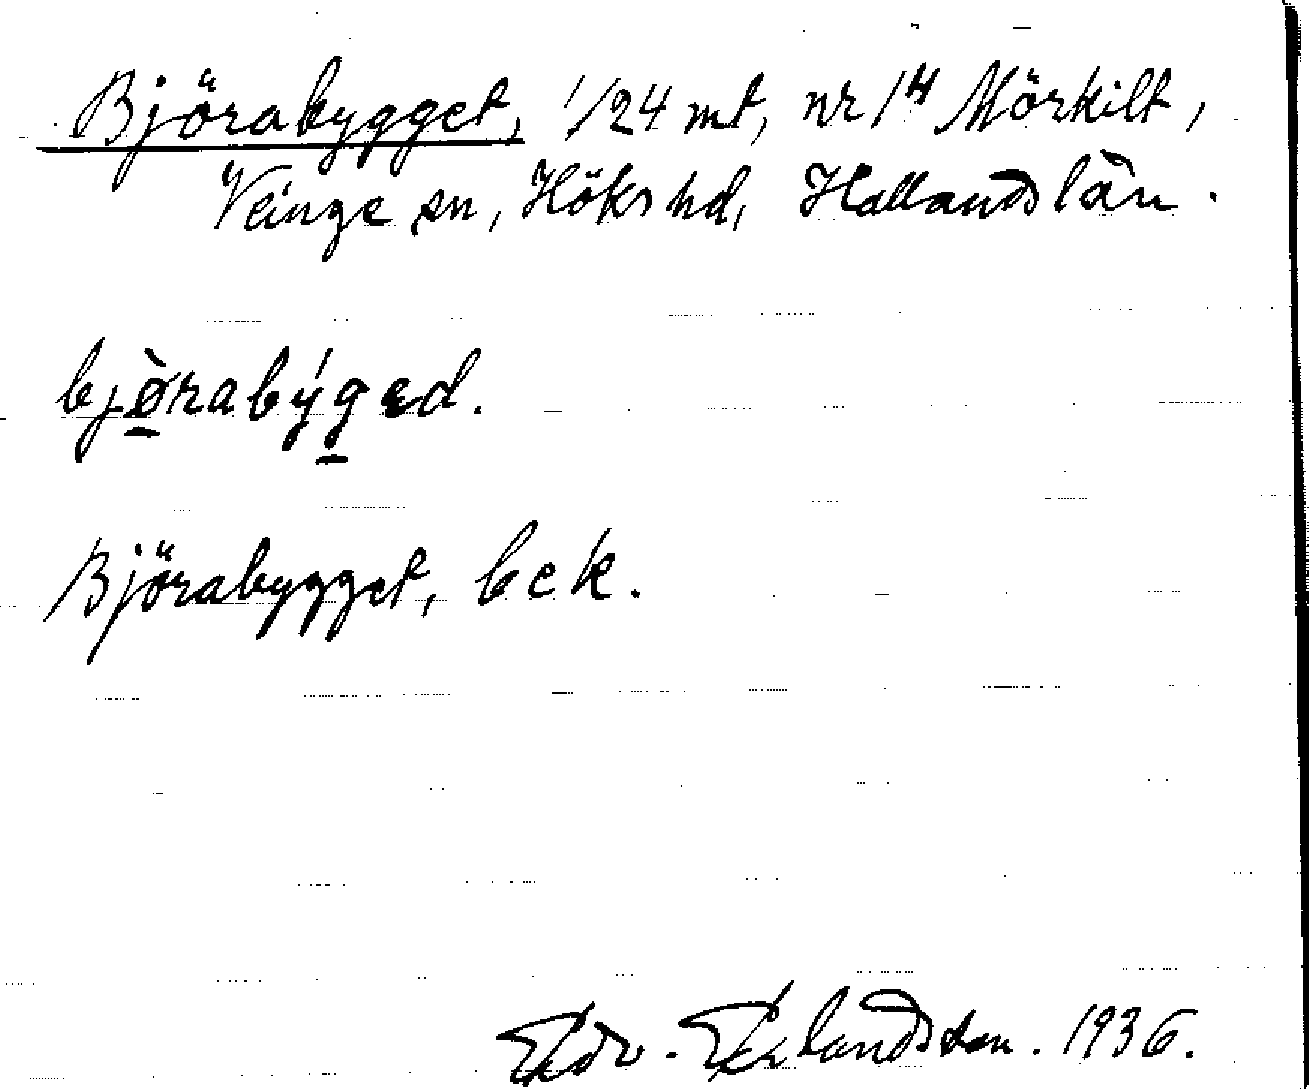 Björabygget, 1/24 mt, nr 1⁴ Mörkilt,
Veinge sn, Höks hd, Hallands län.
bjø̀rabýged.
Björabygget, bek.
Edv. Erlandsson. 1936.